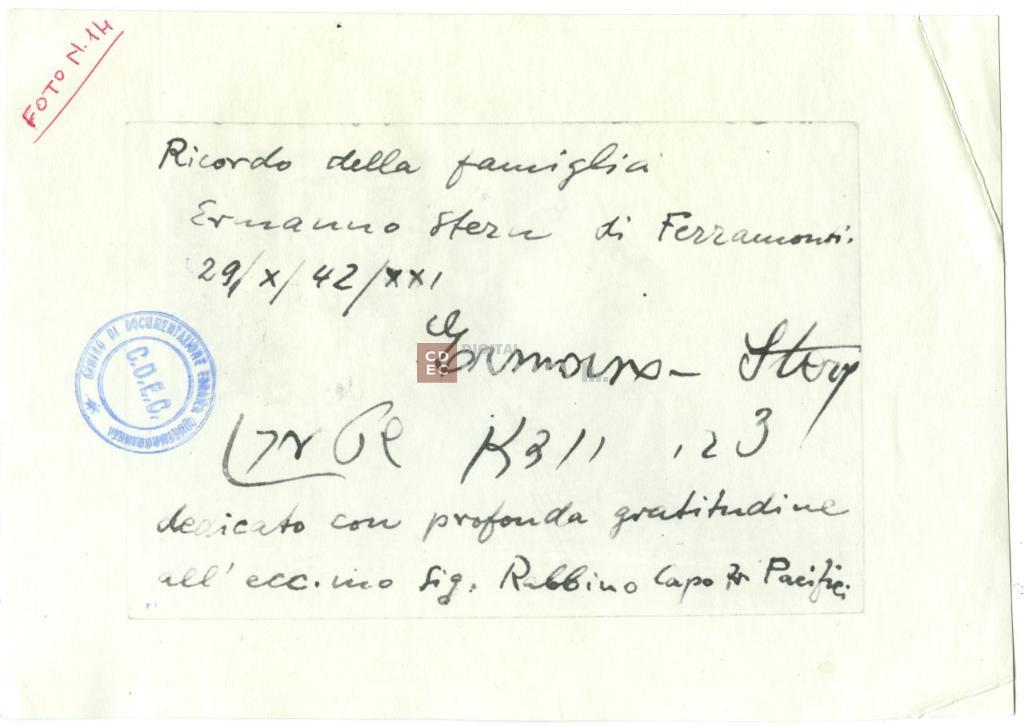 FOTO N. 14
Ricordo della famiglia
Ermanno Stern di Ferramonti.
29/X/42/XXI
Ermanno Stern
dedicato con profonda gratitudine
all' ecc.mo Sig. Rabbino Capo Pacifici
CENTRO DI DOCUMENTAZIONE EBRAICA CONTEMPORANEA
C.D.E.C.
CDEC DIGITAL